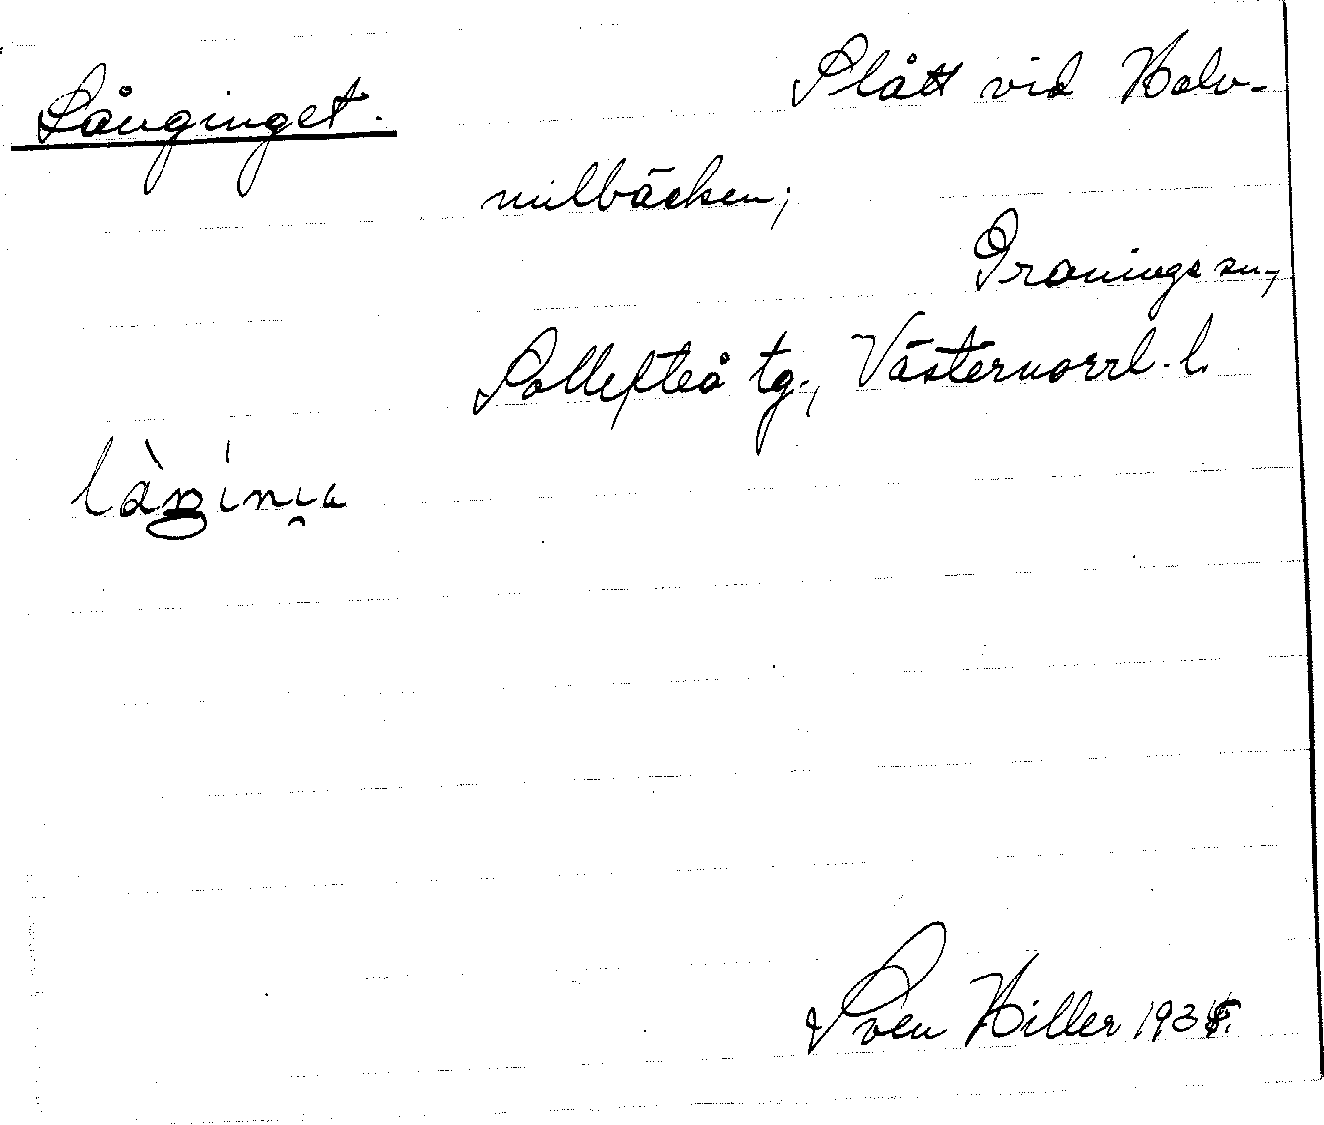 Långinget.
Slått vid Halv-
milbäcken;
Graninge sn,
Sollefteå tg., Västernorrl. l.
Sven Hiller